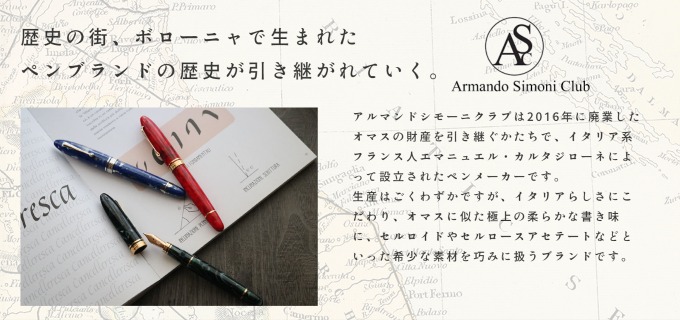 歴史の街、ボローニャで生まれた
ペンブランドの歴史が引き継がれていく。
AS
Armando Simoni Club
アルマンドシモーニクラブは2016年に廃業した
オマスの財産を引き継ぐかたちで、イタリア系
フランス人エマニュエル・カルタジローネによ
って設立されたペンメーカーです。
生産はごくわずかですが、イタリアらしさにこ
だわり、オマスに似た極上の柔らかな書き味
に、セルロイドやセルロースアセテートなどと
いった希少な素材を巧みに扱うブランドです。
resca
Elpidio
Port Fermo